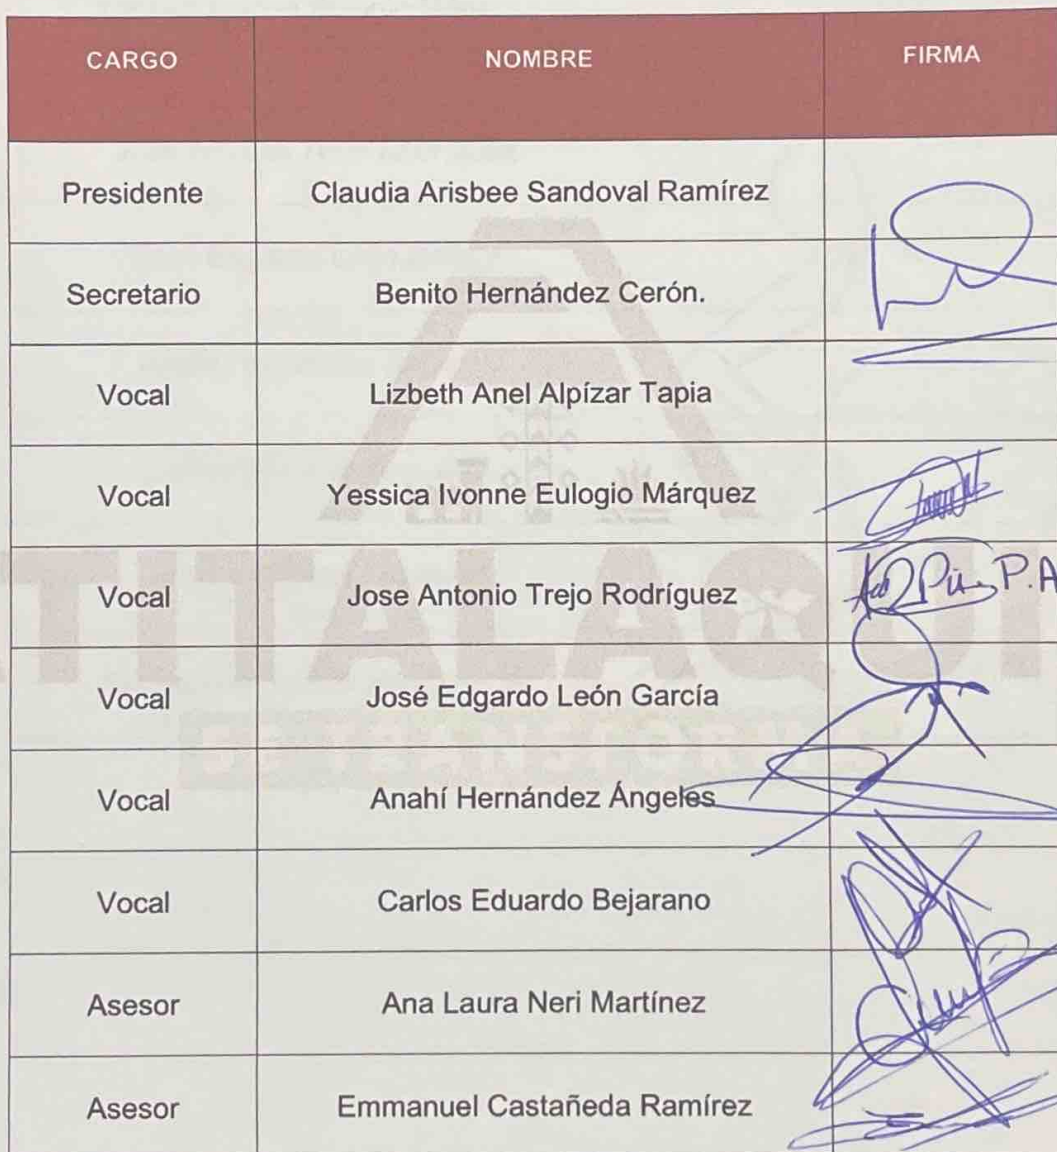 CARGO NOMBRE FIRMA
Presidente Claudia Arisbee Sandoval Ramírez
Secretario Benito Hernández Cerón.
Vocal Lizbeth Anel Alpízar Tapia
Vocal Yessica Ivonne Eulogio Márquez
Vocal Jose Antonio Trejo Rodríguez P.A
Vocal José Edgardo León García
Vocal Anahí Hernández Ángeles
Vocal Carlos Eduardo Bejarano
Asesor Ana Laura Neri Martínez
Asesor Emmanuel Castañeda Ramírez